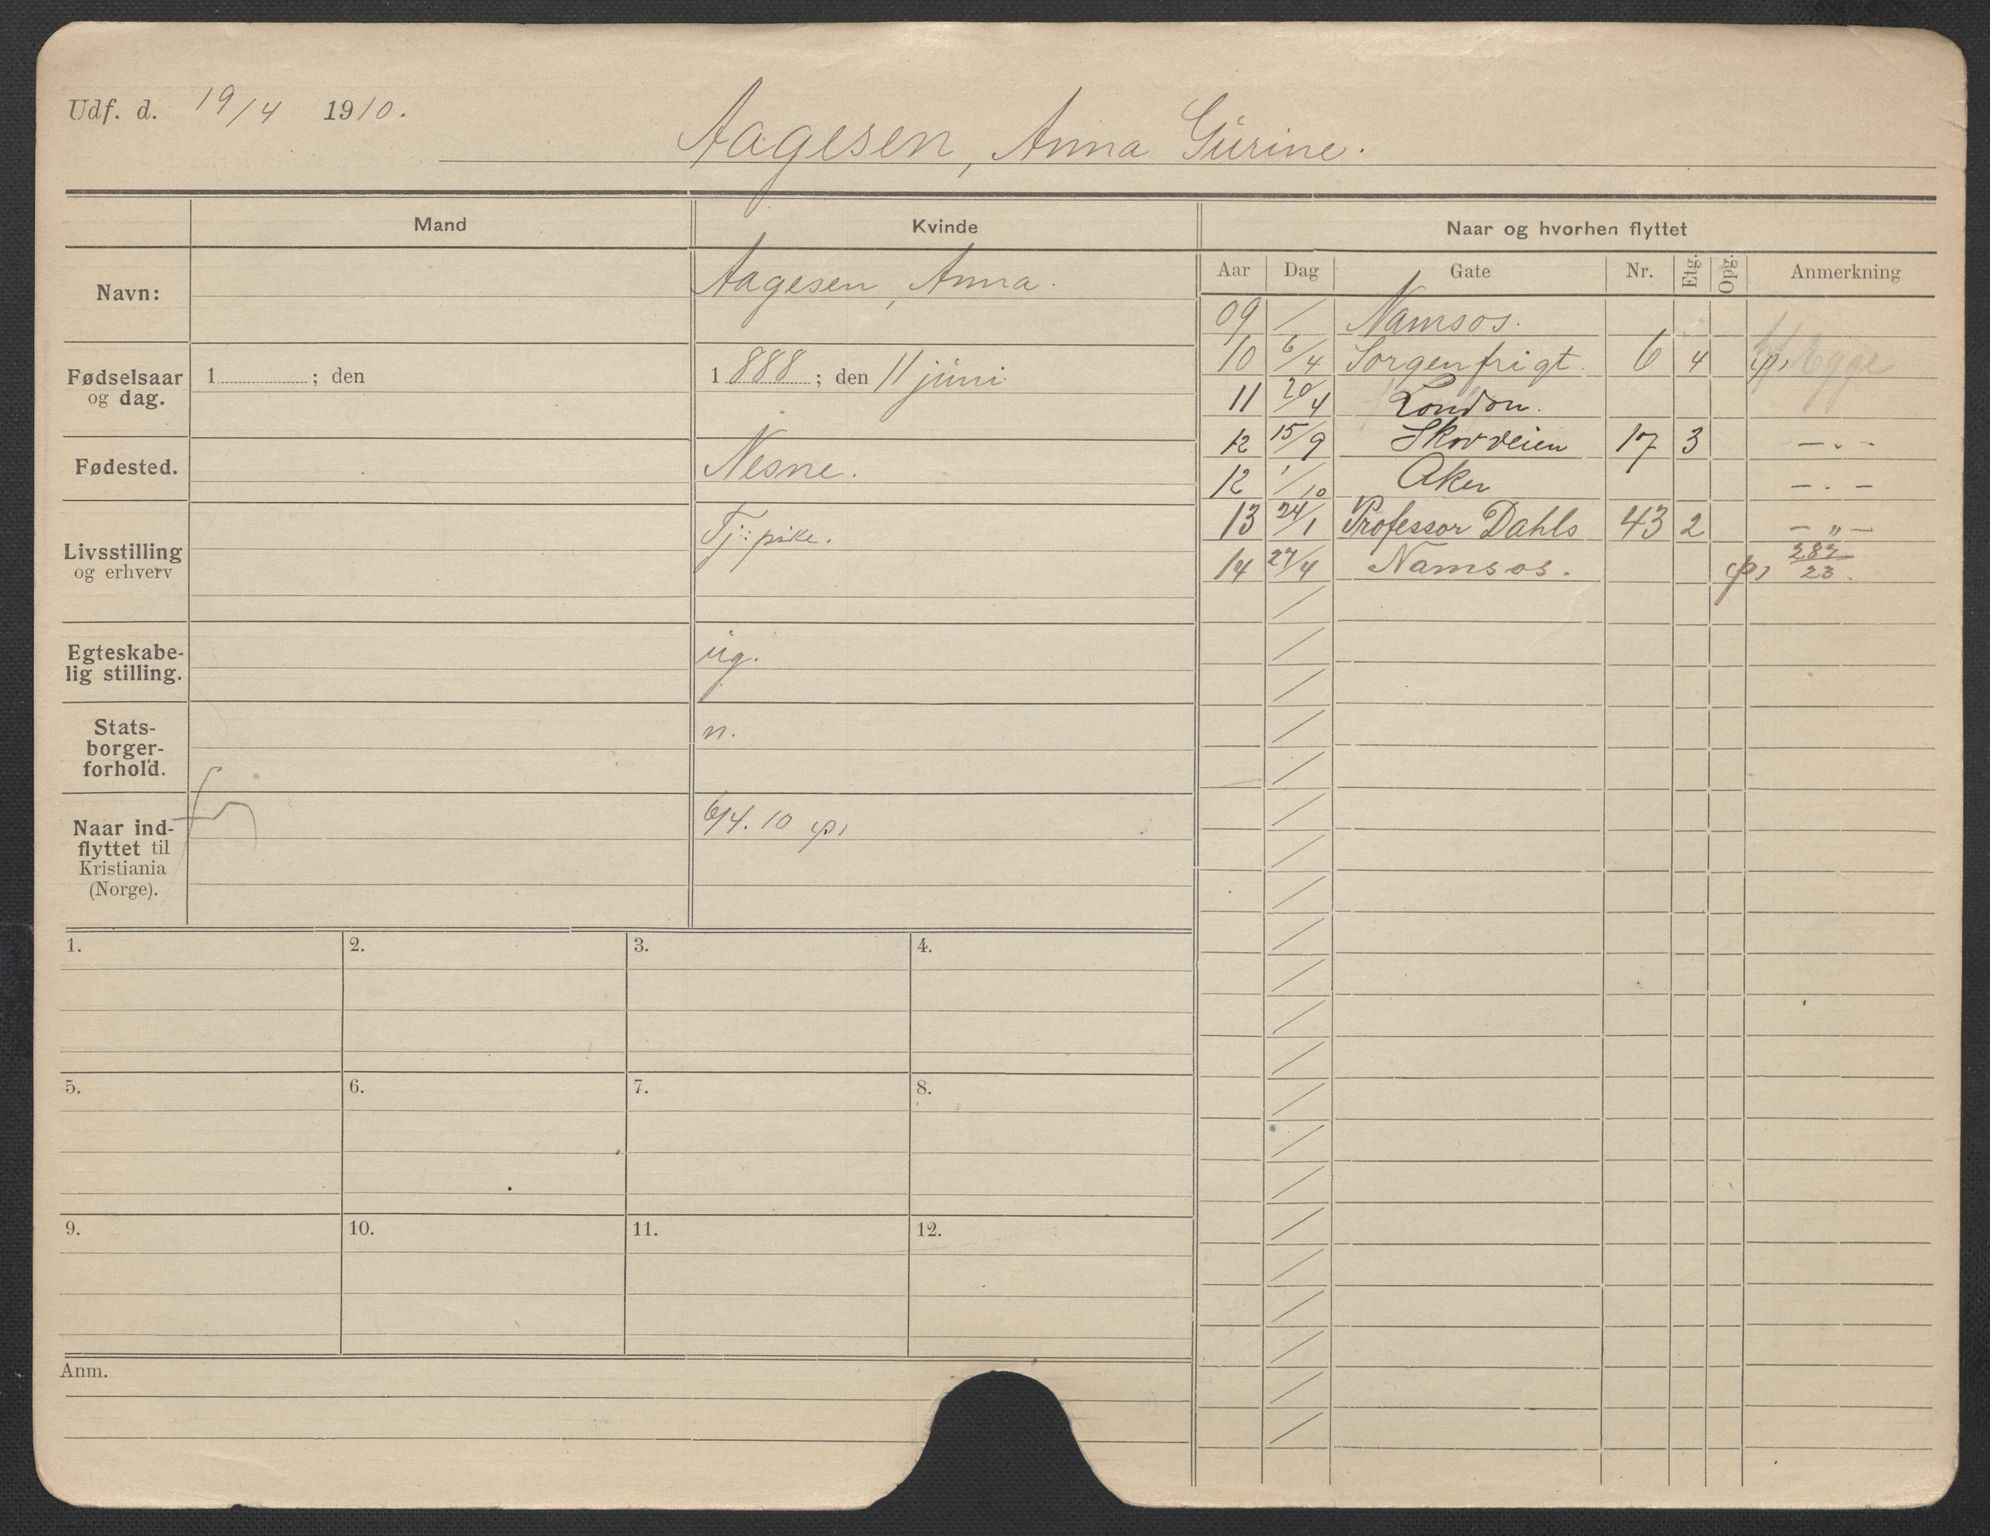 Udf. d. 19/4 1910.
Aagesen, Anna Gurine.
Mand Kvinde Naar og hvorhen flyttet
Aar Dag Gate Nr. Etg. Opg. Anmerkning
Navn: Aagesen, Anna.
Fødselsaar og dag. 1 ; den 1 888 ; den 11 juni
Fødested. Nesne.
Livsstilling og erhverv Tj: pike.
Egteskabe-
lig stilling. ug.
Stats-
borger-
forhold. n.
Naar ind-
flyttet til
Kristiania
(Norge). 6/4. 10 p,
09 / Namsos.
10 6/4 Sorgenfrigt. 6 4 p, Egge
11 20/4 London.
12 15/9 Skovveien 17 3 — . —
12 1/10 Aker — . —
13 24/1 Professor Dahls 43 2 — „ —
14 27/4 Namsos. p, 287/23.
1. 2. 3. 4.
5. 6. 7. 8.
9. 10. 11. 12.
Anm.